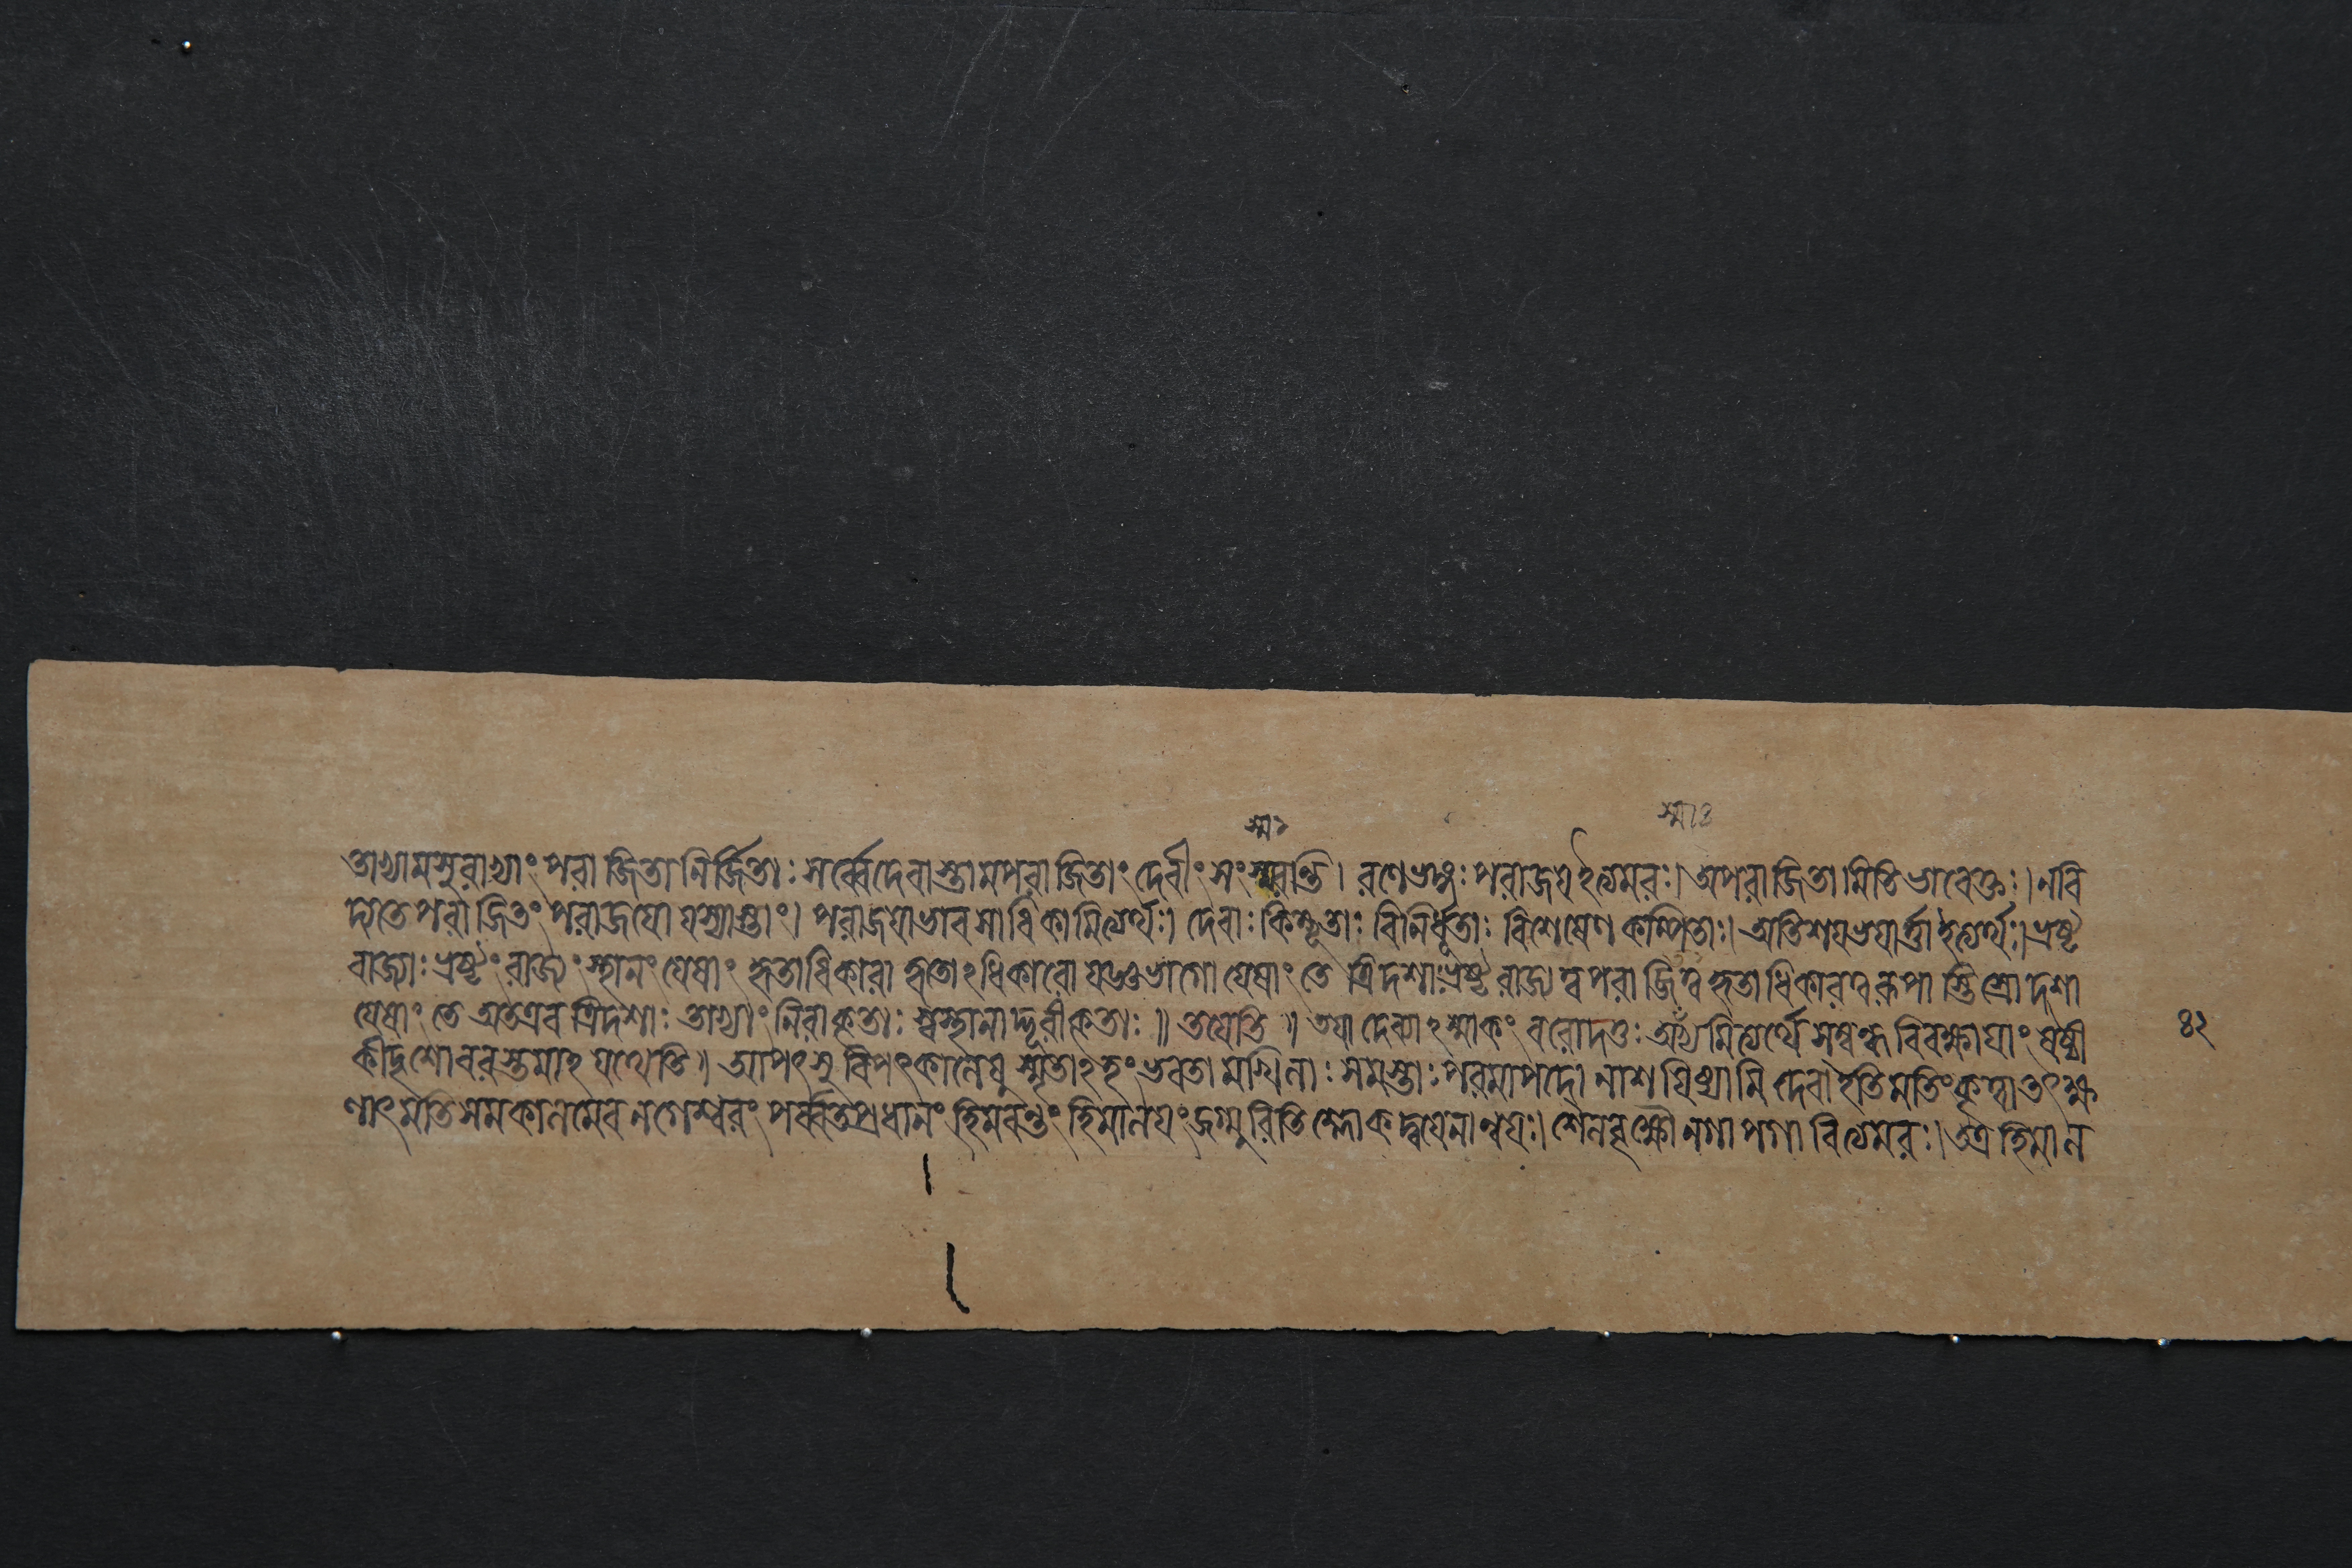 স্ম১
স্মা৪
তাখ্যামসুরাখ্যাং পরাজিতানির্জ্জিতাঃ সর্ব্বেদেবাস্তামপরাজিতাং দেবীং সংস্মরন্তি। রণেভঙ্গঃ পরাজয়ইত্যমরঃ। অপরাজিতামিতিভাবেক্তঃ। নবি
দ্যতেপরাজিতং পরাজয়ো যস্যাস্তাং। পরাজয়াভাবসাধিকামিত্যর্থঃ। দেবাঃ কিম্ভূতাঃ বিনির্ধূতাঃ বিশেষেণ কম্পিতাঃ। অতিশয়ভয়ার্ত্তাইত্যর্থঃ। ভ্রষ্ট
রাজ্যাঃ ভ্রষ্টং রাজ্যং স্থানং যেষাং হৃতাধিকারা হৃতোঽধিকারো যজ্ঞভাগো যেষাং তে ত্রিদশাঃ ভ্রষ্টরাজ্যত্বপরাজিত্বহৃতাধিকারত্বরূপাস্তিস্রোদশা
যেষাং তে অতএব ত্রিদশাঃ তাভ্যাং নিরাকৃতাঃ স্বস্থানাদ্দূরীকৃতাঃ॥ তয়েতি॥ তয়া দেব্যাঽস্মাকং বরোদত্তঃ অস্মভ্যমিত্যর্থে সম্বন্ধবিবক্ষায়াং ষষ্ঠী
কীদৃশোবরস্তমাহ যথেতি॥ আপৎসু বিপৎকালেষু স্মৃতাঽহং ভবতামখিলাঃ সমস্তাঃ পরমাপদো নাশয়িষ্যামি দেবাইতিমতিংকৃত্বাতৎক্ষ
ণাৎ মতিসমকালমেব নগেশ্বরং পর্ব্বতপ্রধানং হিমবন্তং হিমালয়ং জগ্মুরিতি শ্লোকদ্বয়েনান্বয়ঃ। শৈলবৃক্ষৌ নগাবগাবিত্যমরঃ। তত্র হিমাল
৪২